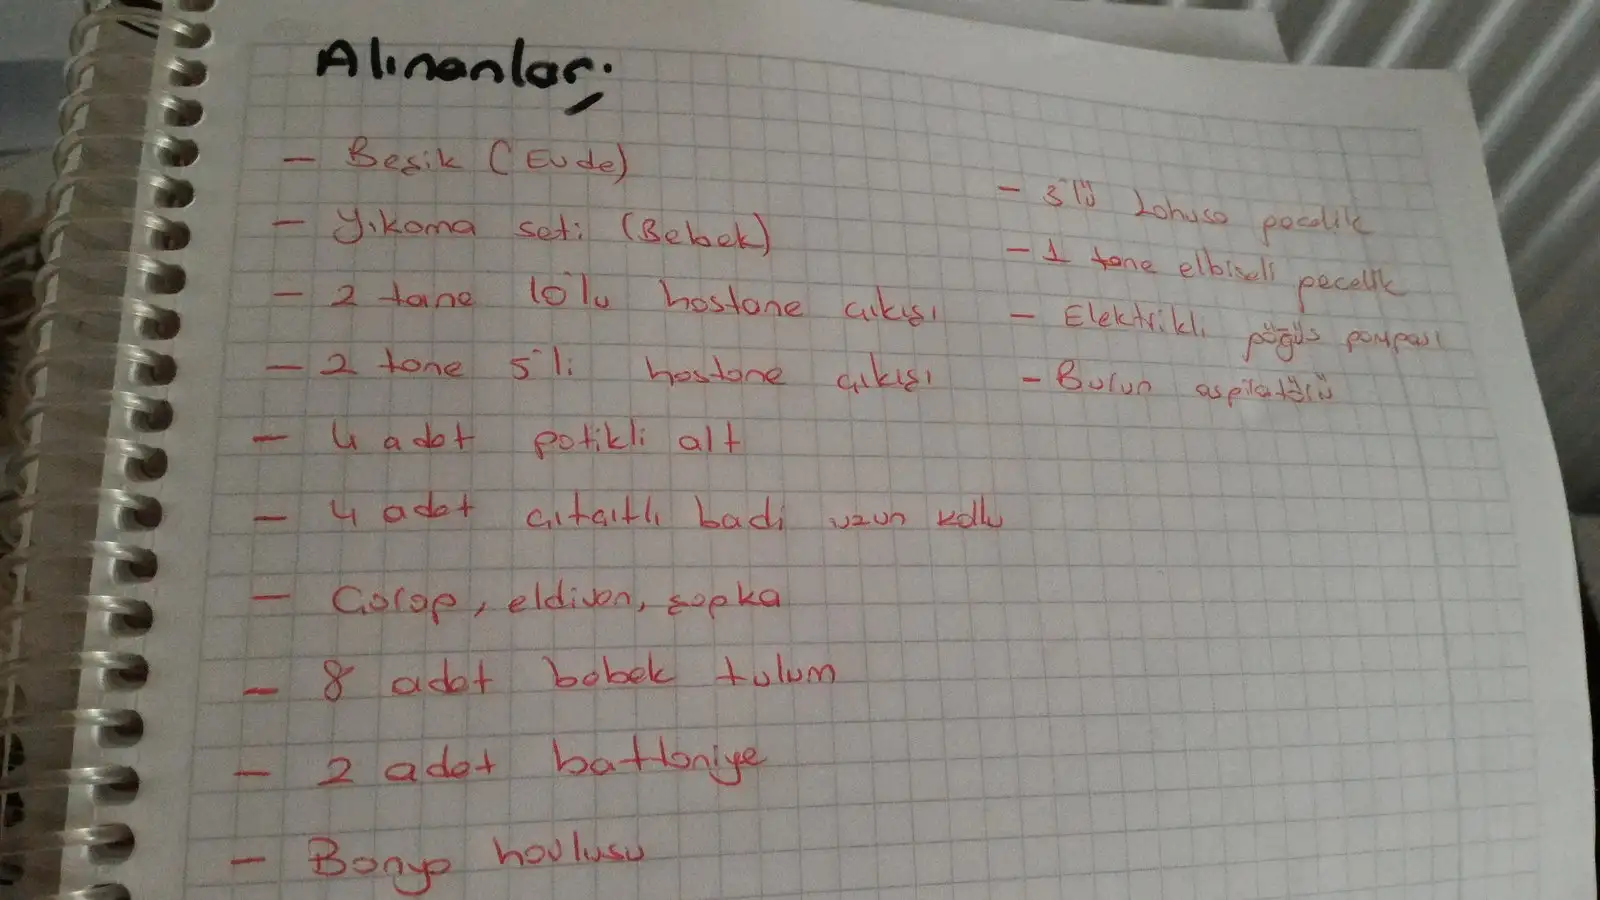 Alınanlar;
- Beşik (Evde)
- Yıkama seti (Bebek)
- 2 tane 10'lu hastane çıkışı
- 2 tane 5'li hastane çıkışı
- 4 adet patikli alt
- 4 adet çıtçıtlı badi uzun kollu
- Çorap, eldiven, şapka
- 8 adet bebek tulum
- 2 adet battaniye
- Banyo havlusu
- 3'lü Lohusa gecelik
- 1 tane elbiseli gecelik
- Elektrikli göğüs pompası
- Burun aspiratörü